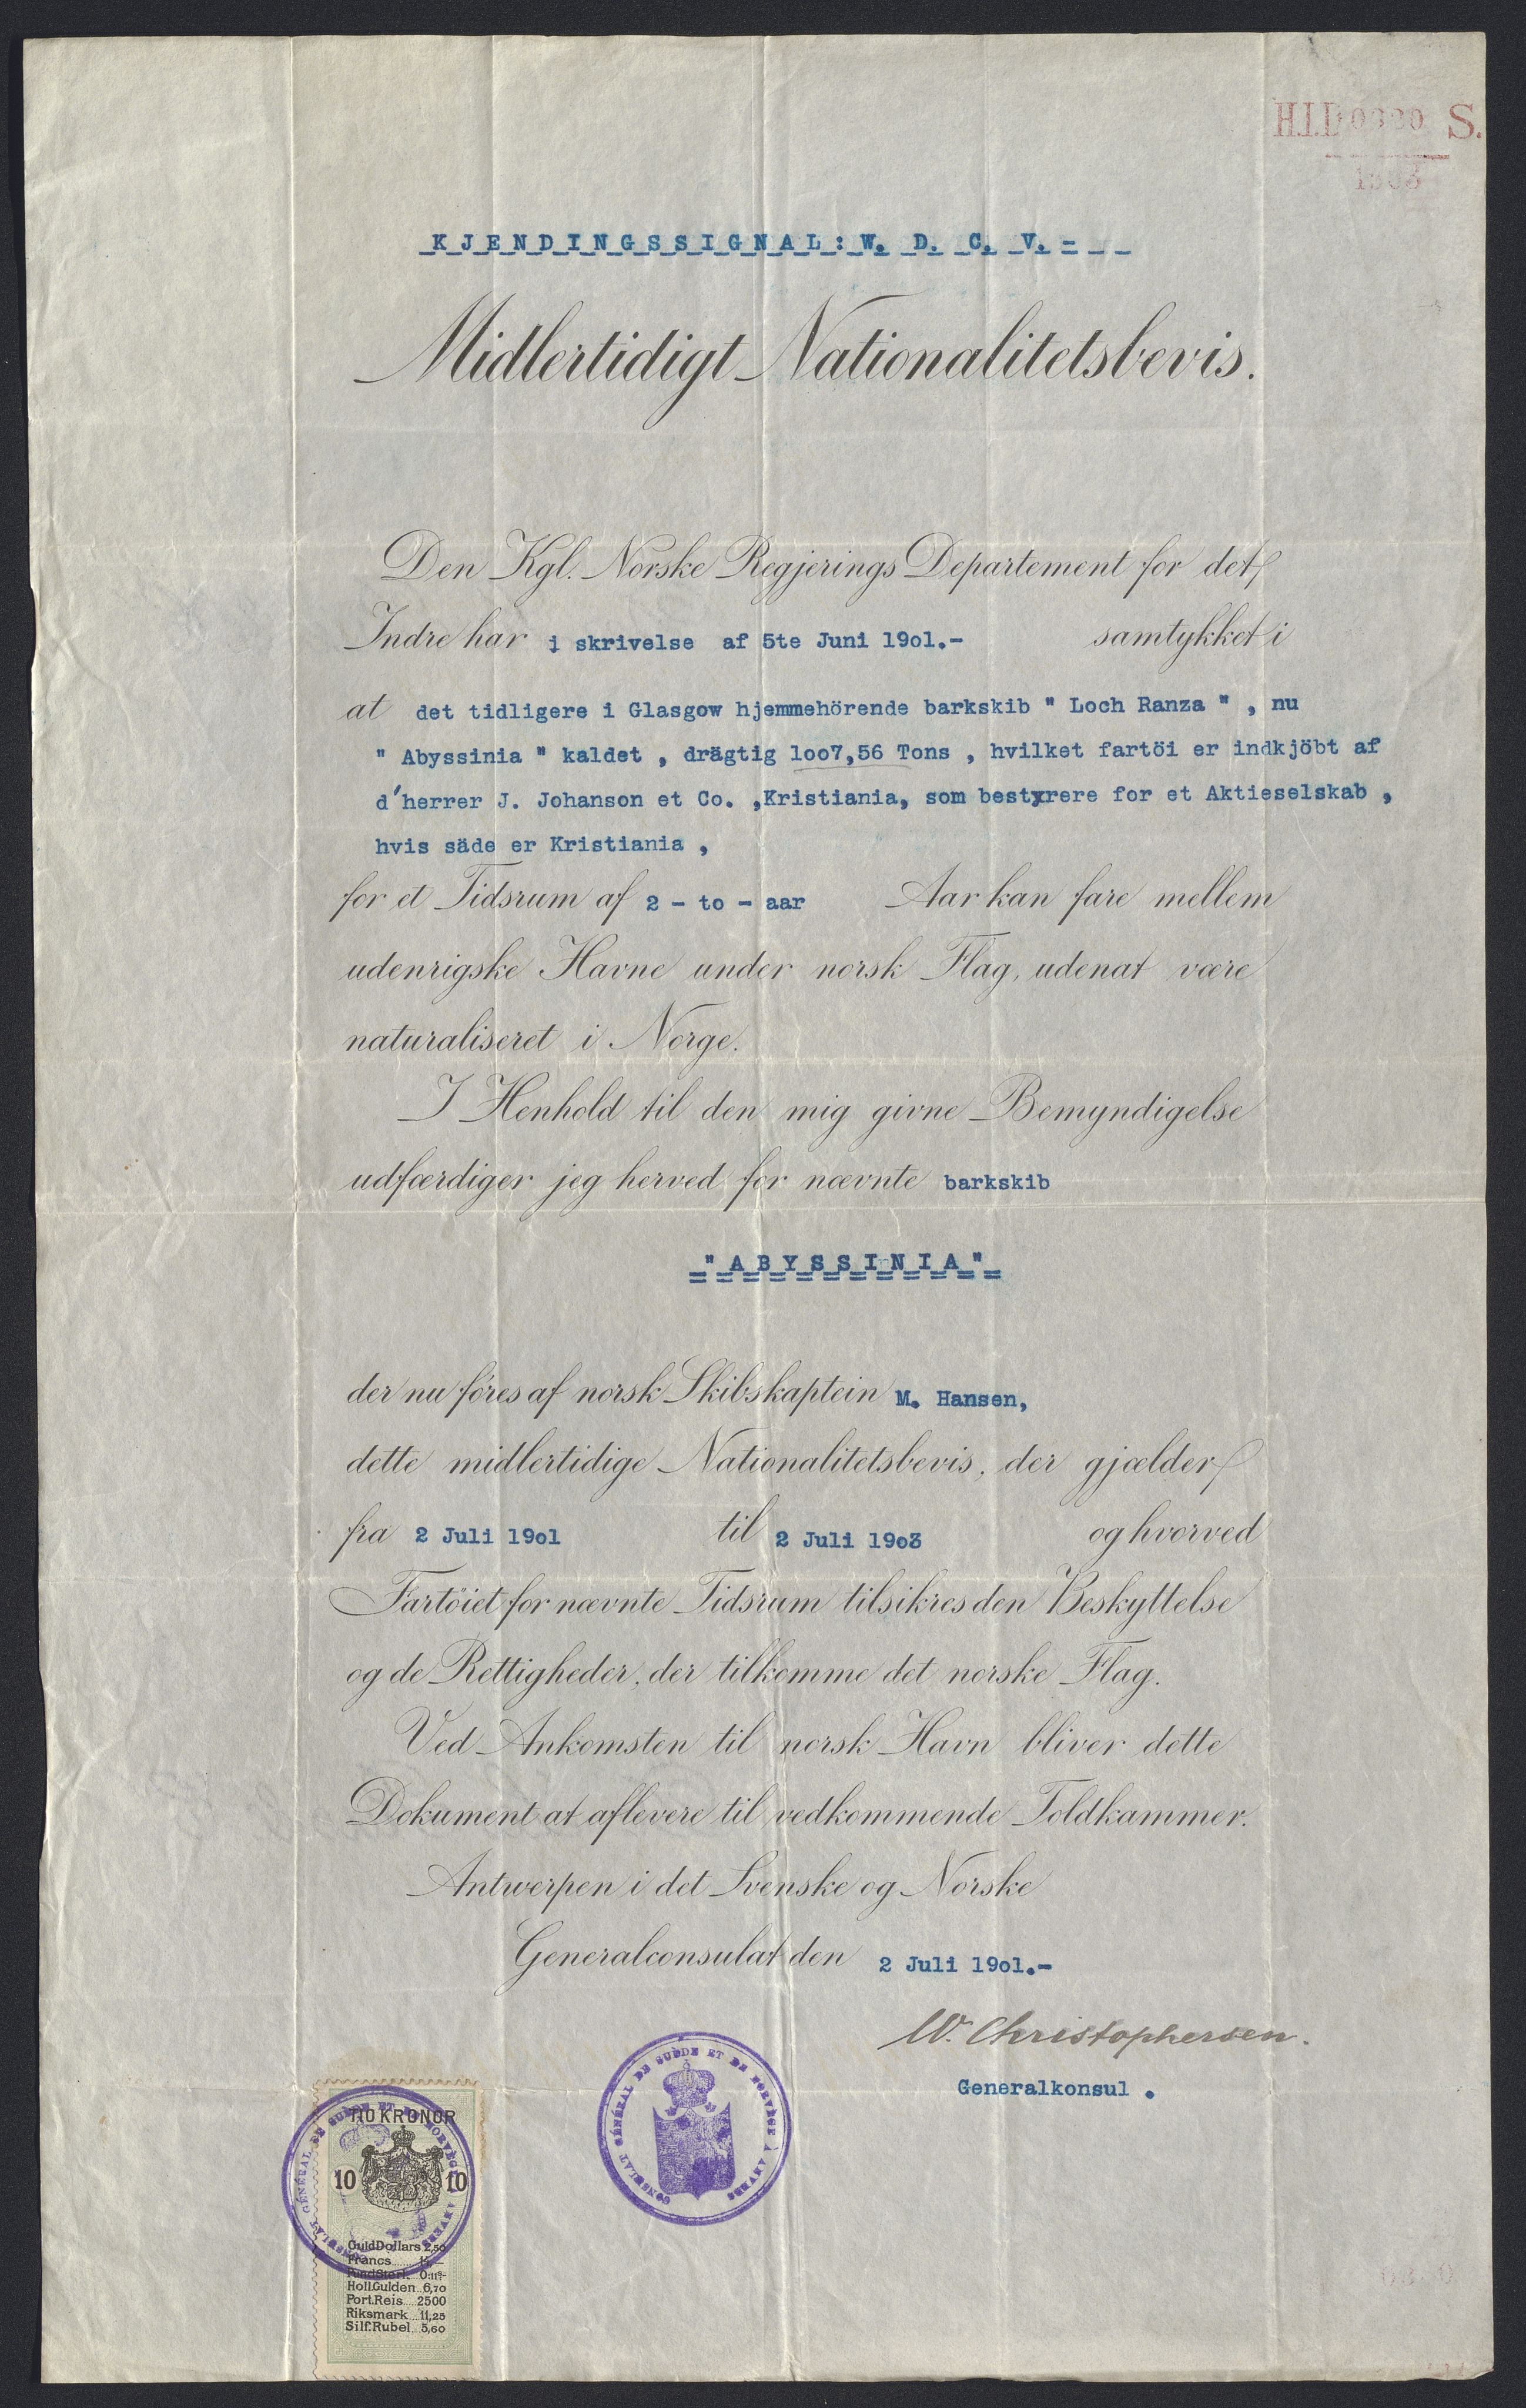 H.I.D 0320 S.
1903
KJENDINGSSIGNAL: W. D. C. V. =
Midlertidigt Nationalitetsbevis.
Den Kgl. Norske Regjerings Departement for det
Indre har i skrivelse af 5te Juni 19o1.- samtykket i
at det tidligere i Glasgow hjemmehörende barkskib " Loch Ranza " , nu
" Abyssinia " kaldet , drägtig 1oo7,56 Tons , hvilket fartöi er indkjöbt af
d'herrer J. Johanson et Co. ,Kristiania, som bestyrere for et Aktieselskab ,
hvis säde er Kristiania ,
for et Tidsrum af 2 - to - aar Aar kan fare mellem
udenrigske Havne under norsk Flag, uden at være
naturaliseret i Norge.
I Henhold til den mig givne Bemyndigelse
udfærdiger jeg herved for nævnte barkskib
"ABYSSINIA"
der nu föres af norsk Skibskaptein M. Hansen,
dette midlertidige Nationalitetsbevis, der gjælder
fra 2 Juli 19o1 til 2 Juli 19o3 og hvorved
Fartöiet for nævnte Tidsrum tilsikres den Beskyttelse
og de Rettigheder, der tilkomme det norske Flag.
Ved Ankomsten til norsk Havn bliver dette
Dokument at aflevere til vedkommende Toldkammer.
Antwerpen i det Svenske og Norske
Generalconsulat den 2 Juli 19o1.-
W. Christophersen.
Generalkonsul .
CONSULAT GÉNÉRAL DE SUÈDE ET DE NORVÈGE À ANVERS
CONSULAT GÉNÉRAL DE SUÈDE ET DE NORVÈGE À ANVERS
TIO KRONOR
10 10
GuldDollars 2,50
Francs
Pund Sterl. 0:11
Holl.Gulden 6,70
Port.Reis 2500
Riksmark 11,25
Silf.Rubel 5,60